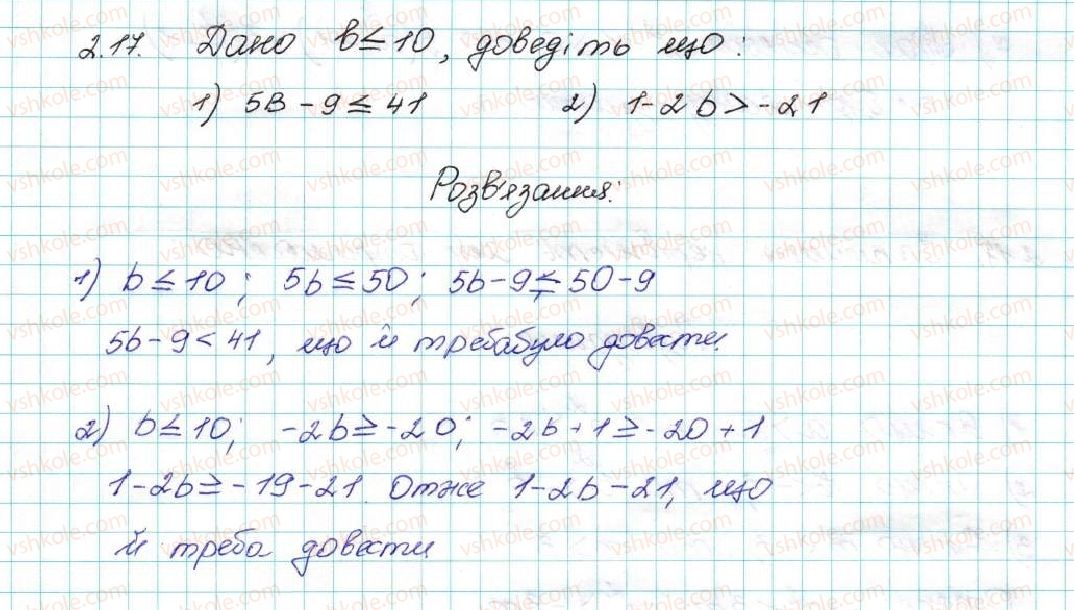 2.17. Дано b ≤ 10, доведіть що:
1) 5В - 9 ≤ 41 2) 1 - 2b > -21
Розв'язання:
1) b ≤ 10; 5b ≤ 50; 5b - 9 ≤ 50 - 9
5b - 9 < 41, що й требабуло довести.
2) b ≤ 10; -2b ≥ -20; -2b + 1 ≥ -20 + 1
1 - 2b ≥ -19 - 21. Отже 1 - 2b - 21, що
й треба довести